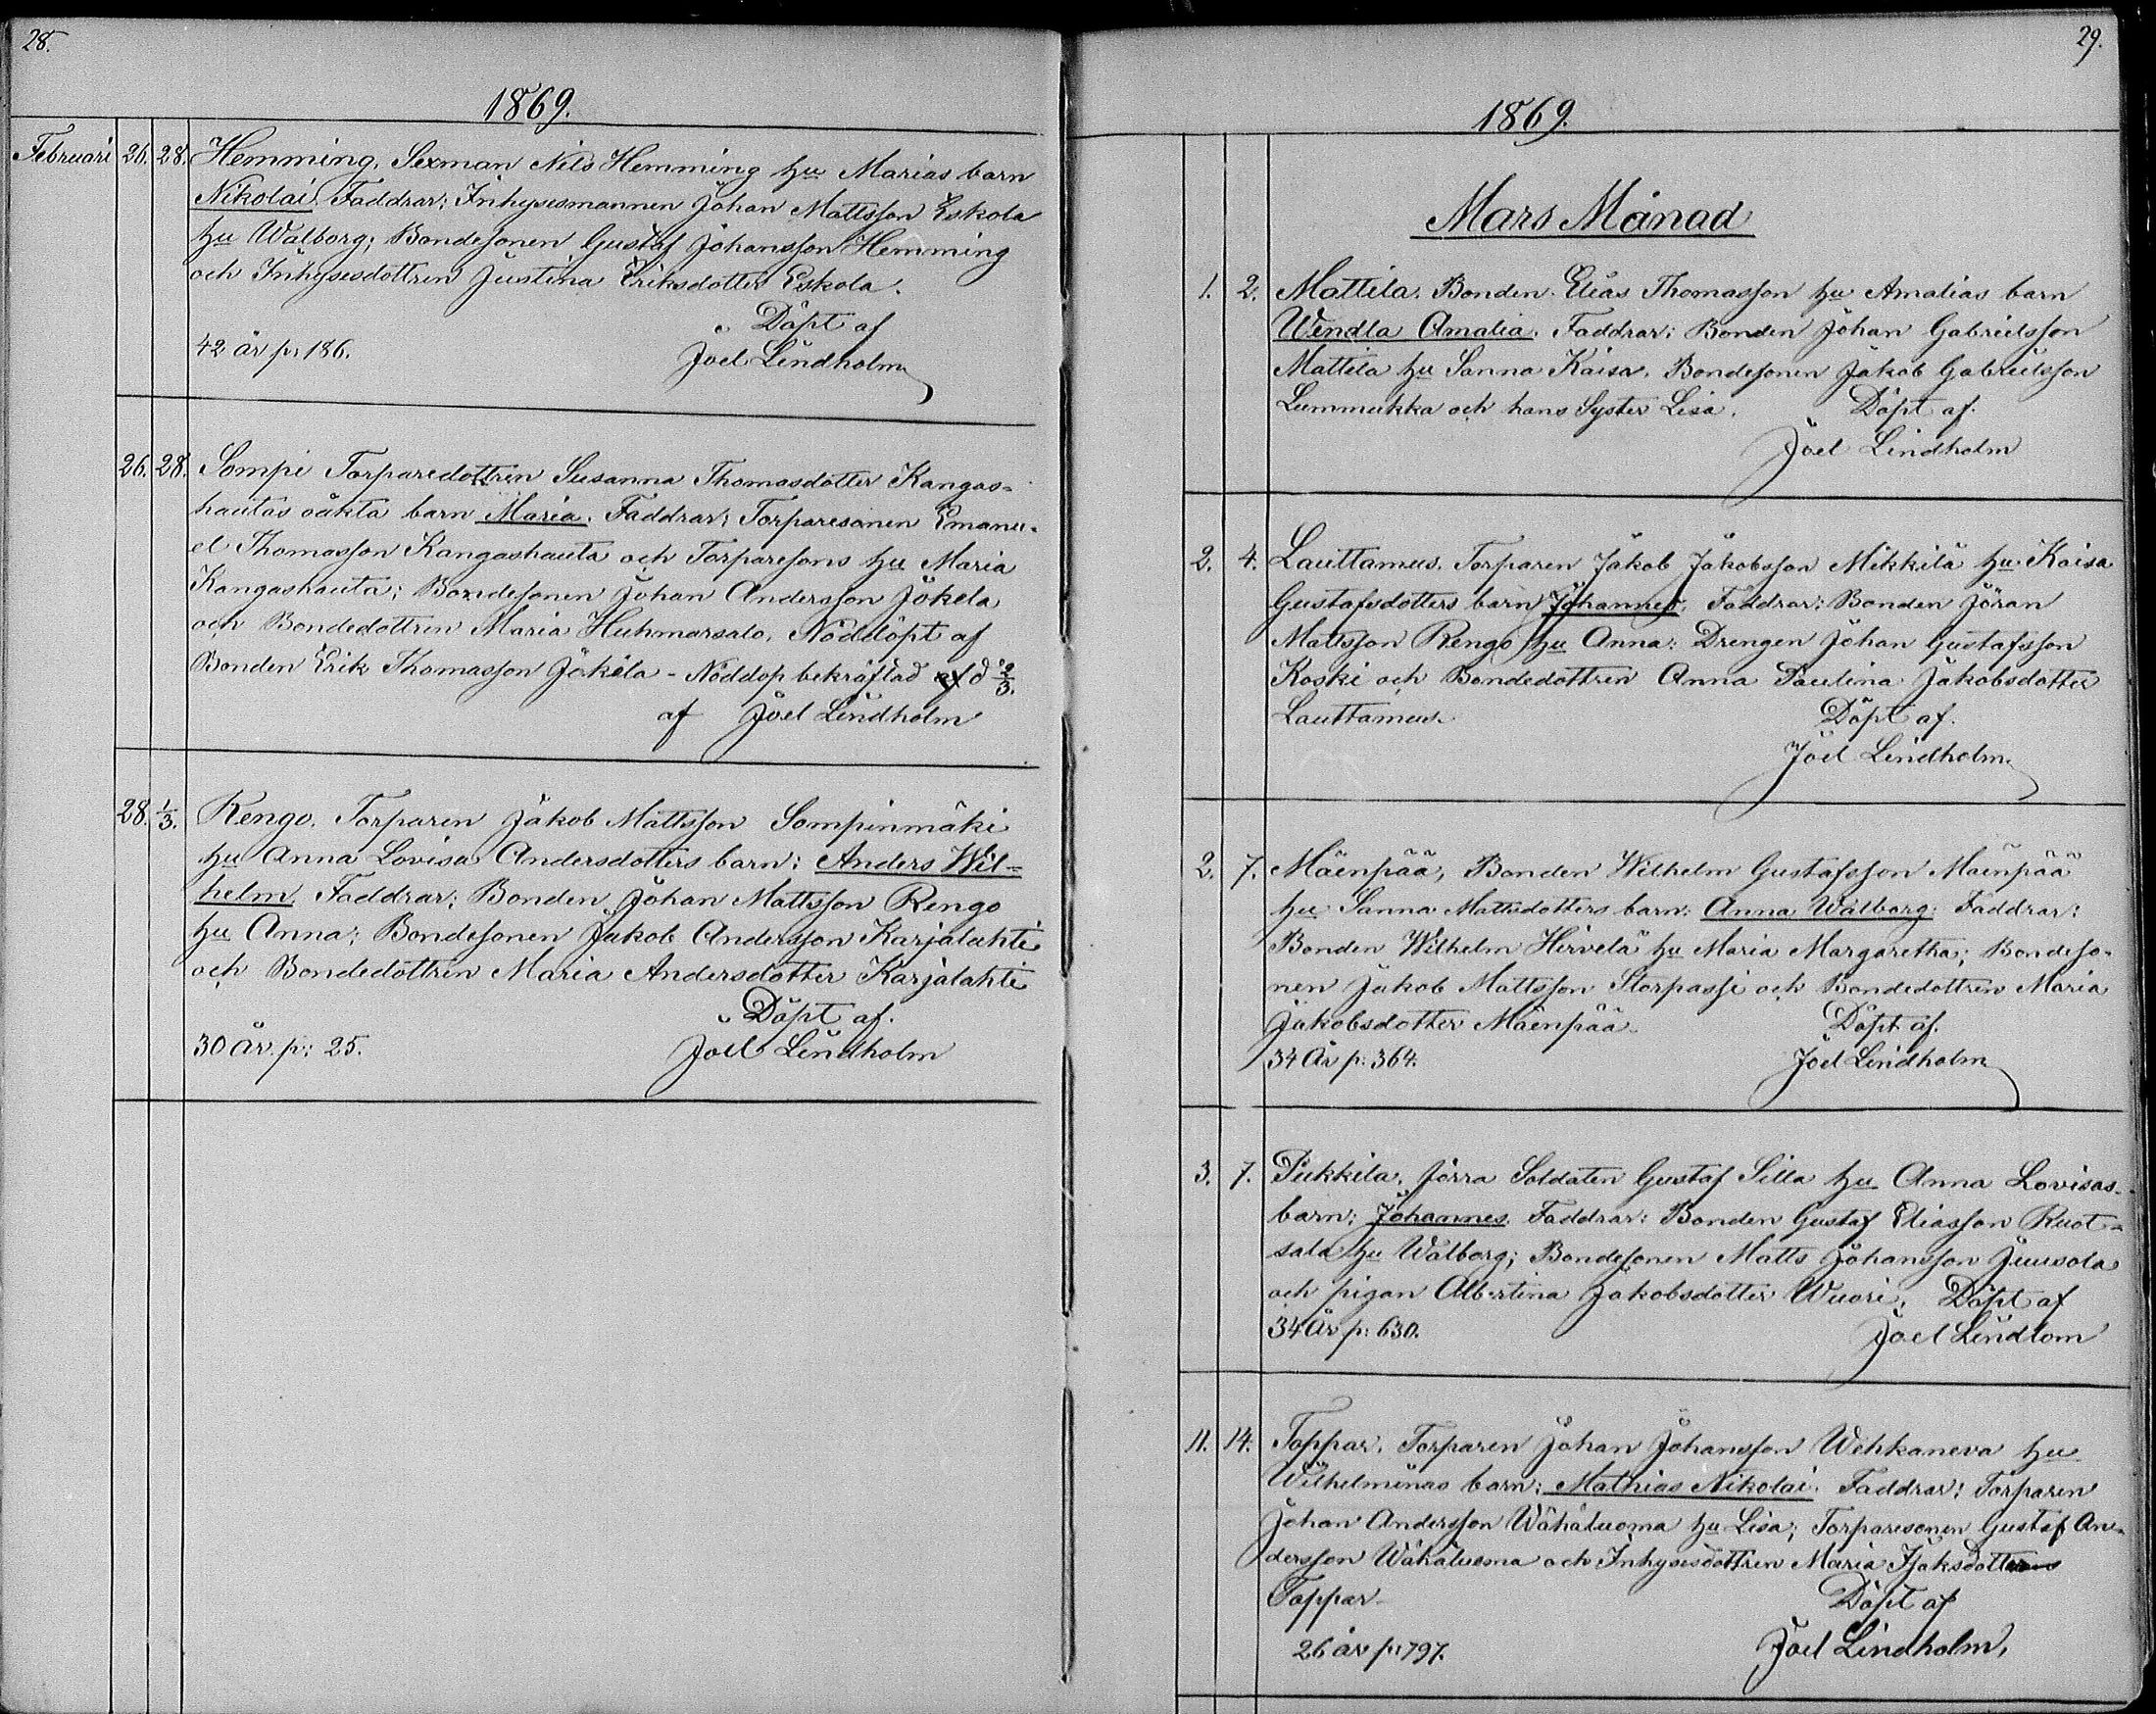 28.
1869.
Februari 26. 28. Hemming. Sexman Nils Hemming hu Marias barn
Nikolai. Faddrar: Inhysesmannen Johan Mattsson Eskola
hu Walborg; Bondesonen Gustaf Johansson Hemming
och Inhysesdottren Justina Eriksdotter Eskola.
Döpt af
42 år p: 186. Joel Lindholm
26. 28. Sompi Torparedottren Susanna Thomasdotter Kangas-
hautas oäkta barn Maria. Faddrar; Torparesonen Emanu-
el Thomasson Kangashauta och Torparesons hu Maria
Kangashauta; Bondesonen Johan Andersson Jokela
och Bondedottren Maria Huhmarsalo, Nöddöpt af
Bonden Erik Thomasson Jokela - Nöddop bekräftad d 2/3.
af Joel Lindholm
28. 1/3. Rengo. Torparen Jakob Mattsson Sompinmäki
hu Anna Lovisa Andersdotters barn: Anders Wil-
helm. Faddrar: Bonden Johan Mattsson Rengo
hu Anna; Bondesonen Jakob Andersson Karjalahti
och Bondedottren Maria Andersdotter Karjalahti
Döpt af.
30 år. p: 25. Joel Lindholm
29.
1869.
Mars Månad
1. 2. Mattila. Bonden Elias Thomasson hu Amalias barn
Wendla Amalia. Faddrar: Bonden Johan Gabrielsson
Mattila hu Sanna Kaisa. Bondesonen Jakob Gabrielsson
Lummukka och hans Syster Lisa. Döpt af.
Joel Lindholm
2. 4. Lauttamus. Torparen Jakob Jakobsson Mikkilä hu Kaisa
Gustafsdotters barn Johannes. Faddrar: Bonden Jöran
Mattsson Rengo hu Anna: Drengen Johan Gustafsson
Koski och Bondedottren Anna Paulina Jakobsdotter
Lauttamus. Döpt af.
Joel Lindholm.
2. 7. Mäenpää, Bonden Wilhelm Gustafsson Mäenpää
hu Sanna Mattsdotters barn: Anna Walborg. Faddrar:
Bonden Wilhelm Hirvelä hu Maria Margaretha; Bondeso-
nen Jakob Mattsson Storpassi och Bondedottren Maria
Jakobsdotter Mäenpää. Döpt af.
34 År p: 364. Joel Lindholm
3. 7. Pukkila. förra Soldaten Gustaf Silla hu Anna Lovisas
barn: Johannes. Faddrar: Bonden Gustaf Eliasson Ruot-
sala hu Walborg; Bondesonen Matts Johansson Juusola
och pigan Albertina Jakobsdotter Wuori. Döpt af
34 År p: 630. Joel Lindlom
11. 14. Toppar. Torparen Johan Johansson Wehkaneva hu
Wilhelminas barn: Mathias Nikolai. Faddrar: Torparen
Johan Andersson Wähäluoma hu Lisa; Torparesonen Gustaf An-
dersson Wähäluoma och Inhysesdottren Maria Isaksdotter
Toppar. Döpt af
26 år p: 797. Joel Lindholm,